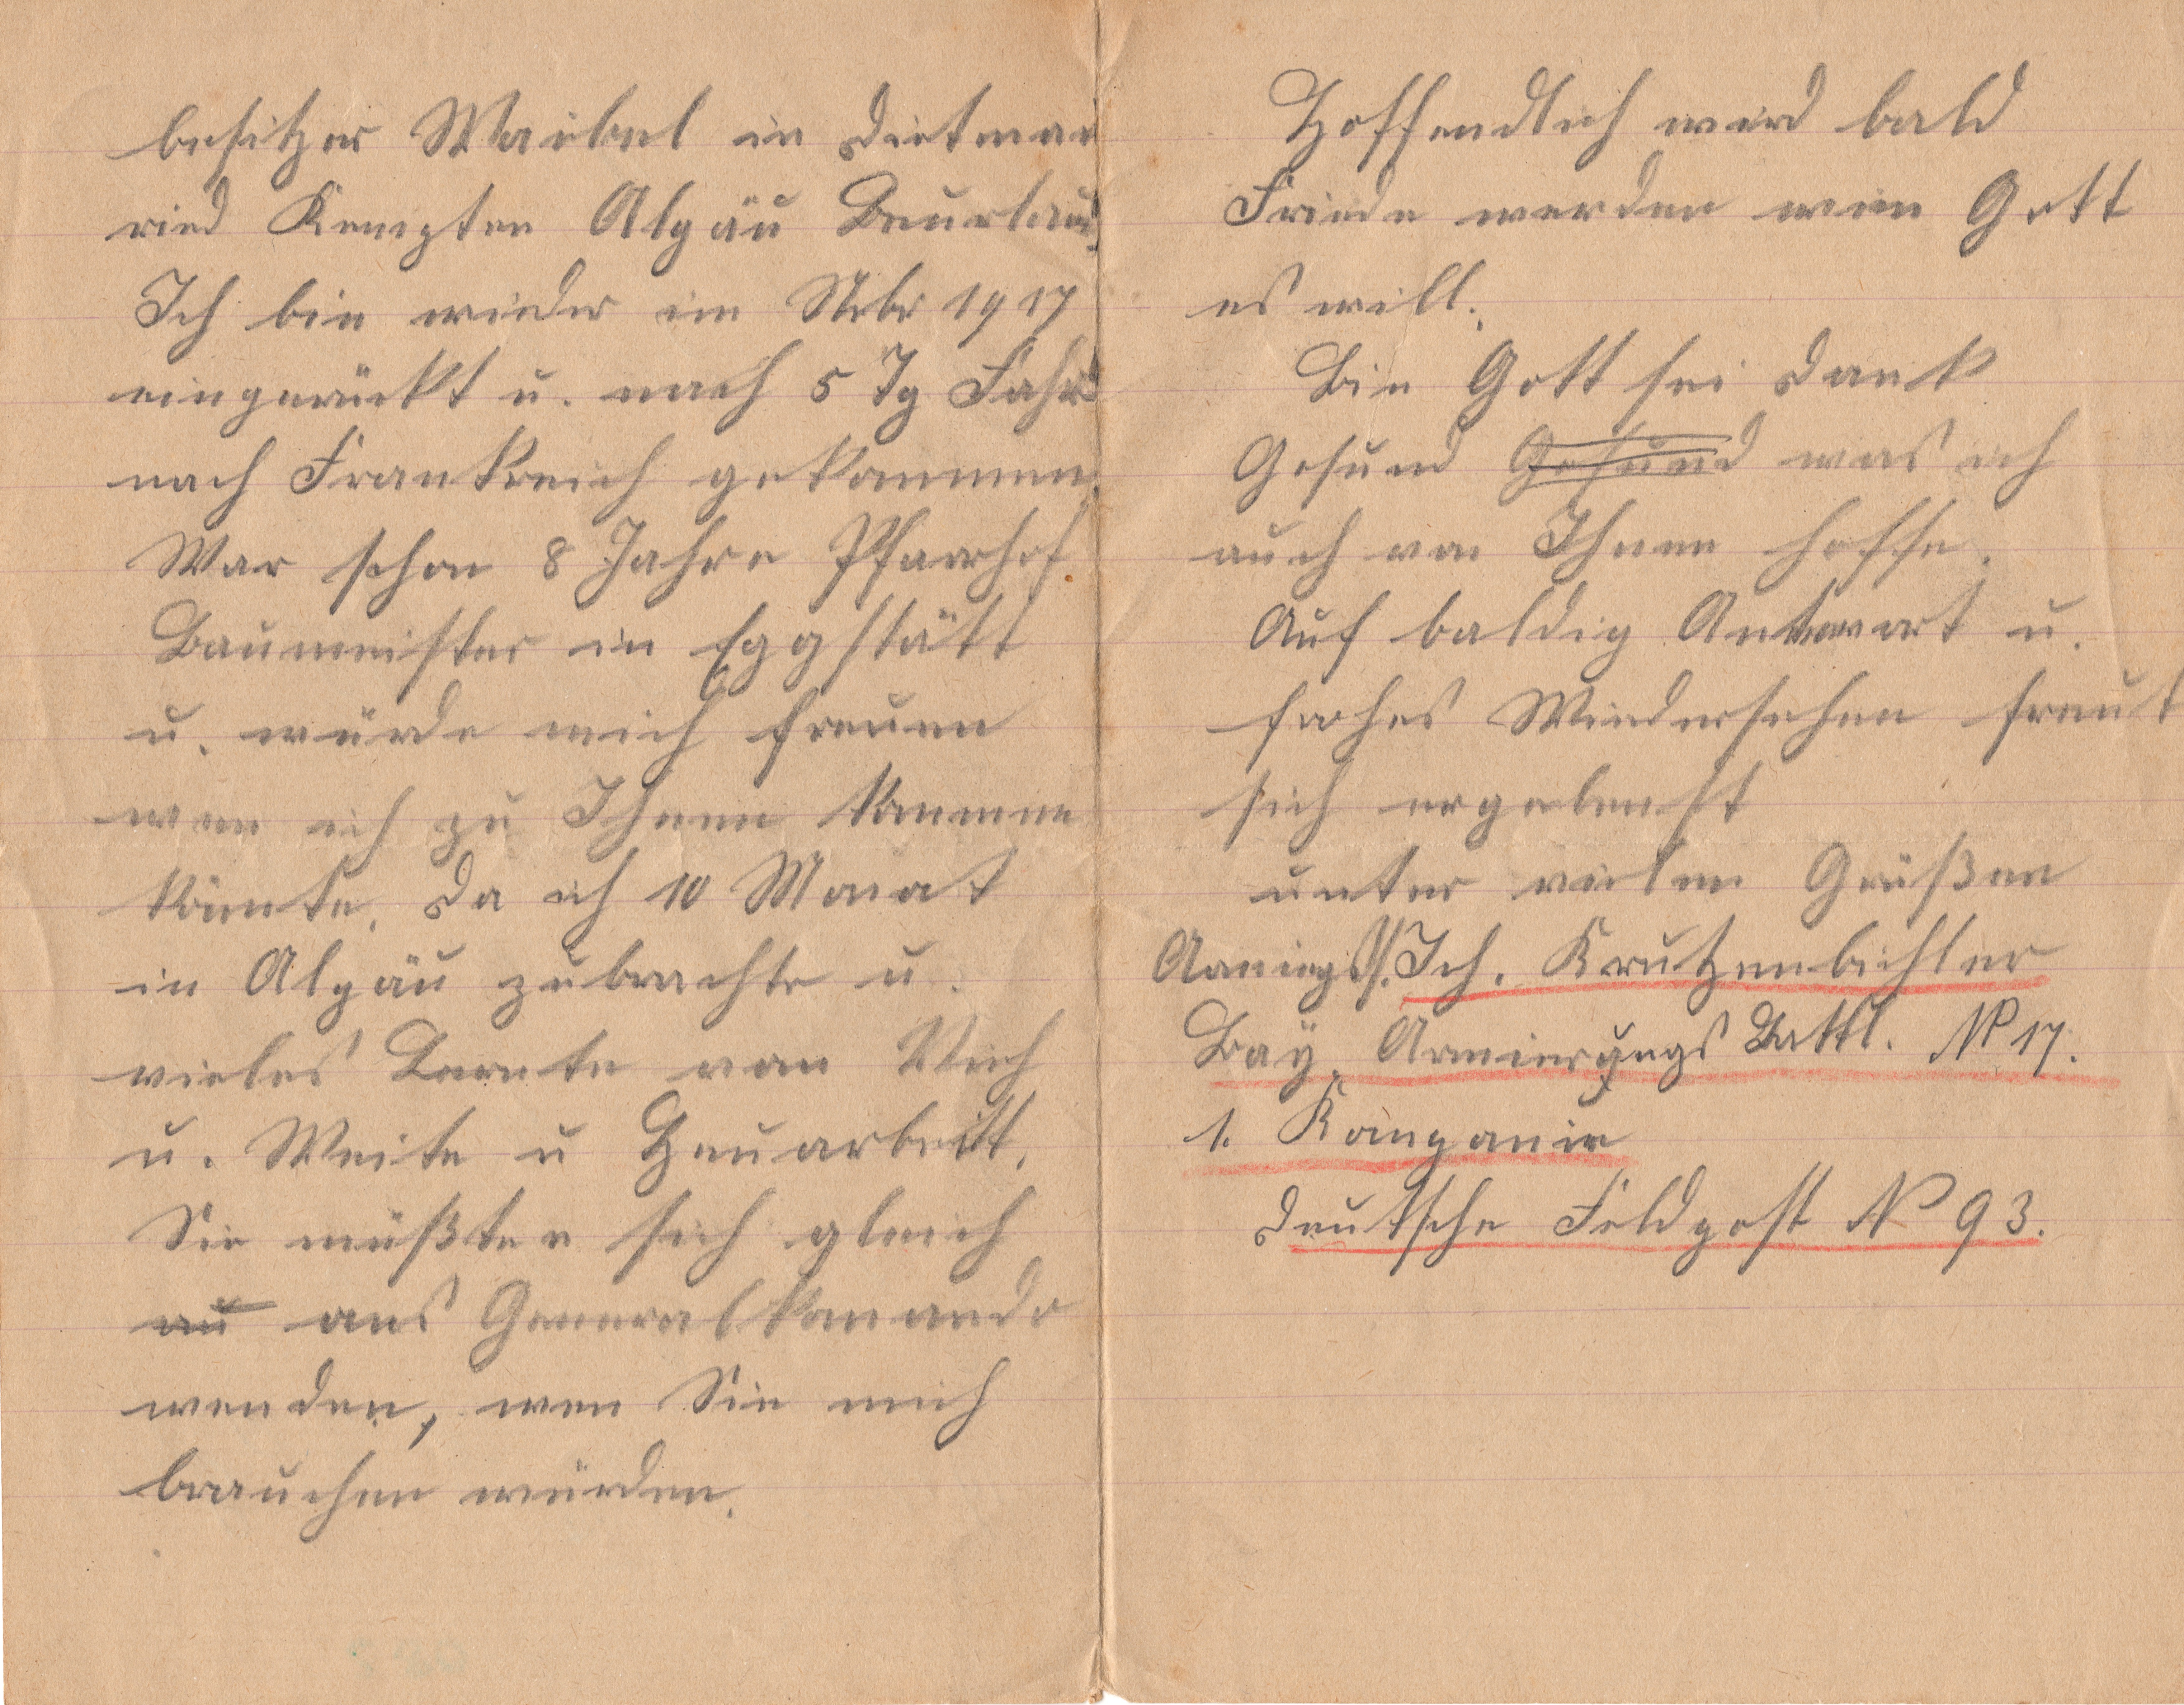 besitzer Waibel in Dietman
ried Kempten Algäu Beurlaub.
Ich bin wieder im Nvbr 1917
eingerückt u. nach 5 Tg Fahrt
nach Frankreich gekommen.
War schon 8 Jahre Pfarrhof
Baumeister in Eggstätt
u. würde mich freuen
wen ich zu Ihnen kommen
könnte. Da ich 10 Monat
in Algäu zubrachte u.
vieles Lernte von Vieh
u. Weite u Heuarbeitt.
Sie müßten sich gleich
au ans Generalkomando
wenden, wen Sie mich
brauchen würden.
Hoffendlich wird bald
Friede werden wen Gott
es will.
Bin Gott sei Dank
Gesund Gesund was ich
auch von Ihnen hoffe.
Auf baldig Antwort u.
frohes Wiedersehen freut
sich ergebenst
unter vielen Grüßen
Krutzenbichler
Bay. Armierungs Battl. № 17.
1. Kompanie
Deutsche Feldpost № 93.